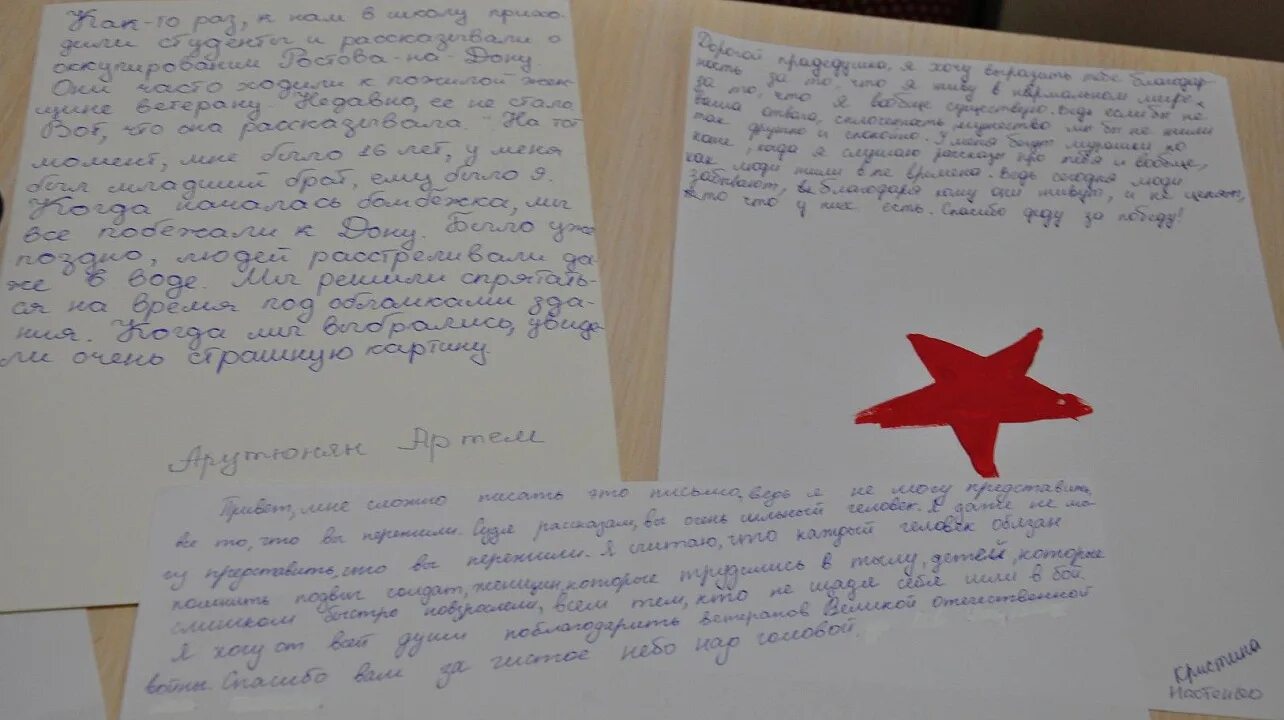 Как-то раз, к нам в школу прихо-
дили студенты и рассказывали о
оккупировании Ростова-на-Дону
Они часто ходили к пожилой жен-
щине ветерану. Недавно, ее не стало
Вот, что она рассказывала. "На тот
момент, мне было 16 лет, у меня
был младший брат, ему было 9.
Когда началась бомбежка, мы
все побежали к Дону. Было уже
поздно, людей расстреливали да-
же в воде. Мы решили спрятать-
ся на время под обломками зда-
ния. Когда мы выбрались, увиде
ли очень страшную картину.
Арутюнян Артем
Дорогой прадедушка, я хочу выразить тебе благодар-
ность за то, что я живу в нормальном мире,
за то, что я вообще существую. Ведь если бы не
ваша отвага, сплоченность, мужество мы бы не жили
так дружно и спокойно. У меня бегут мурашки по
коже, когда я слушаю рассказы про тебя и вообще,
как люди жили в те времена. Ведь сегодня люди
забывают, благодаря кому они живут, и не ценят,
то что у них есть. Спасибо деду за победу!
Привет, мне сложно писать это письмо, ведь я не могу представить
все то, что вы пережили. Судя рассказам, вы очень сильный человек. Я даже не мо-
гу представить, что вы пережили. Я считаю, что каждый человек обязан
помнить подвиг солдат, женщин, которые трудились в тылу, детей, которые
слишком быстро повзрослели, всем тем, кто не щадя себя шли в бой.
Я хочу от всей души поблагодарить ветеранов Великой отечественной
войны. Спасибо вам за чистое небо над головой.
Кристина